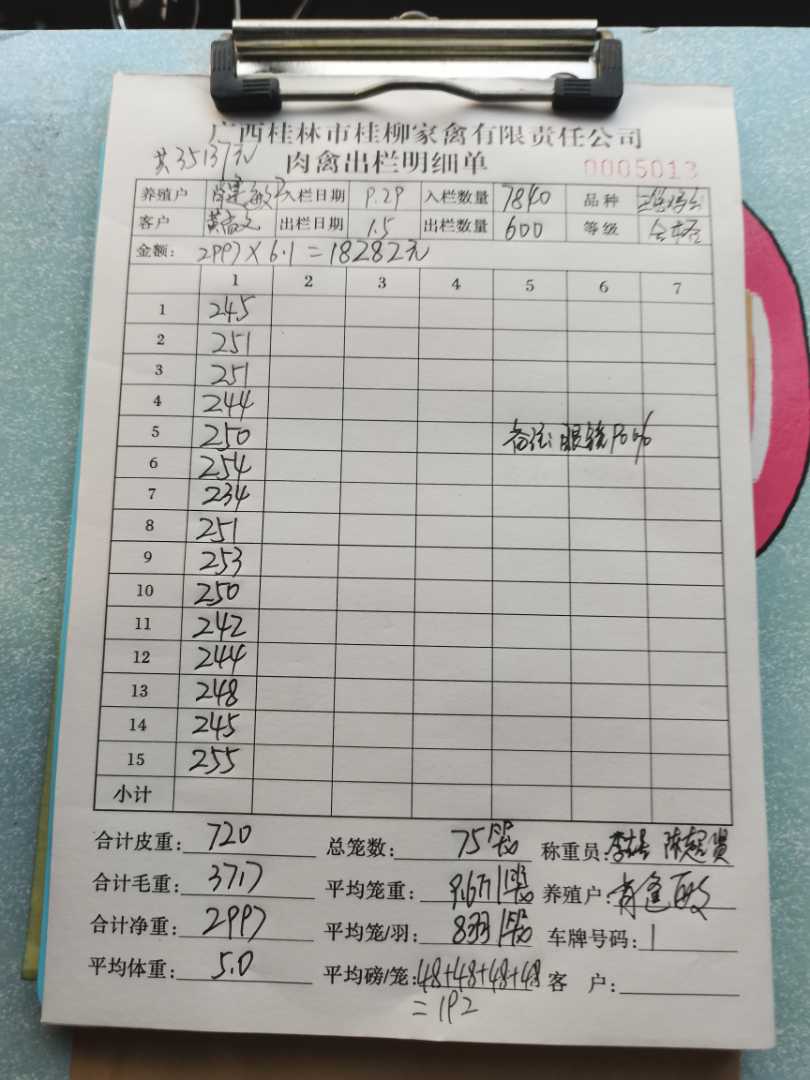 广西桂林市桂柳家禽有限责任公司
共35137元
肉禽出栏明细单 0005013
养殖户 肖建敏 入栏日期 9.29 入栏数量 7840 品种
客户 出栏日期 1.5 出栏数量 600 等级 合格
金额: 2997×6.1=18282元
1 2 3 4 5 6 7
1 245
2 251
3 251
4 244
5 250 备注:眼镜 %
6 254
7 234
8 251
9 253
10 250
11 242
12 244
13 248
14 245
15 255
小计
合计皮重: 720 总笼数: 75 称重员:
合计毛重: 3717 平均笼重: 9.6 养殖户: 肖建敏
合计净重: 2997 平均笼/羽: 8羽 车牌号码:
平均体重: 5.0 平均磅/笼: 48+48+48+48 客 户:
=192